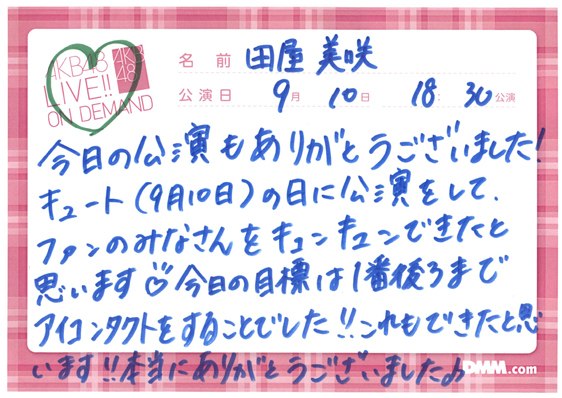 AKB48
LIVE!!
ON DEMAND
AKB
48
名前 田屋美咲
公演日 9月 10日 18:30公演
今日の公演もありがとうございました!
キュート(9月10日)の日に公演をして、
ファンのみなさんをキュンキュンできたと
思います♡今日の目標は1番後ろまで
アイコンタクトをすることでした!!これもできたと思
います!!本当にありがとうございました♪
DMM.com